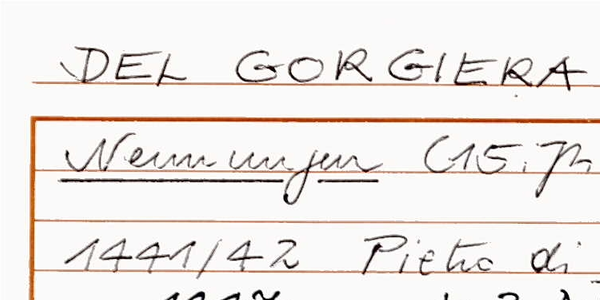 DEL GORGIERA
Nennungen (15. Jh.
1441/42 Pietro di